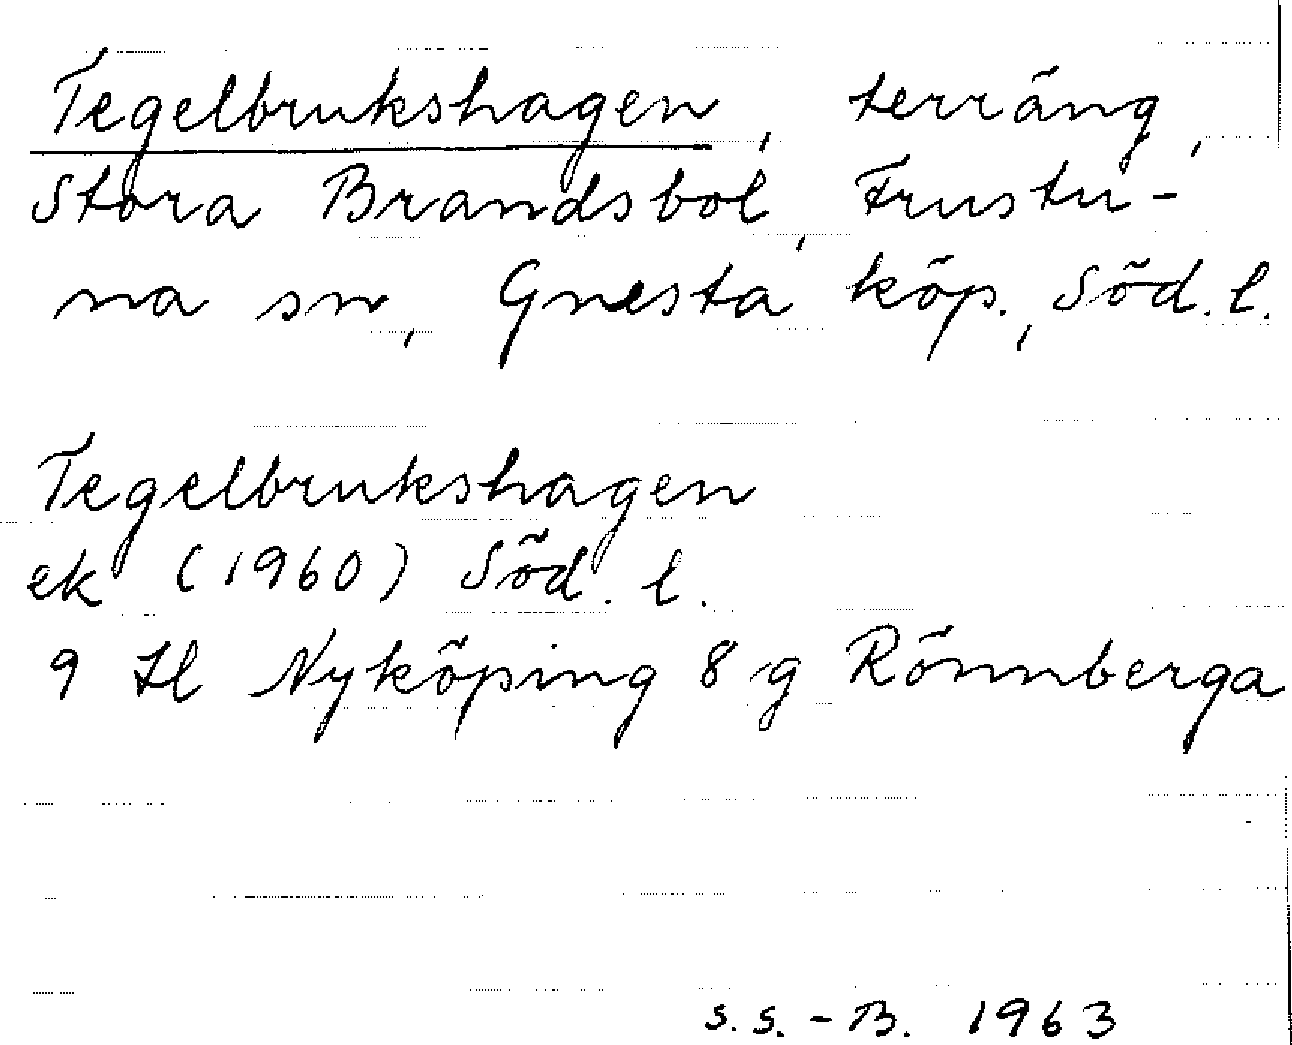 Tegelbrukshagen, terräng,
Stora Brandsbol, Frustu-
na sn, Gnesta köp., Söd. l.
Tegelbrukshagen
ek (1960) Söd. l.
9 H Nyköping 8 g Rönnberga
s. s. - B. 1963